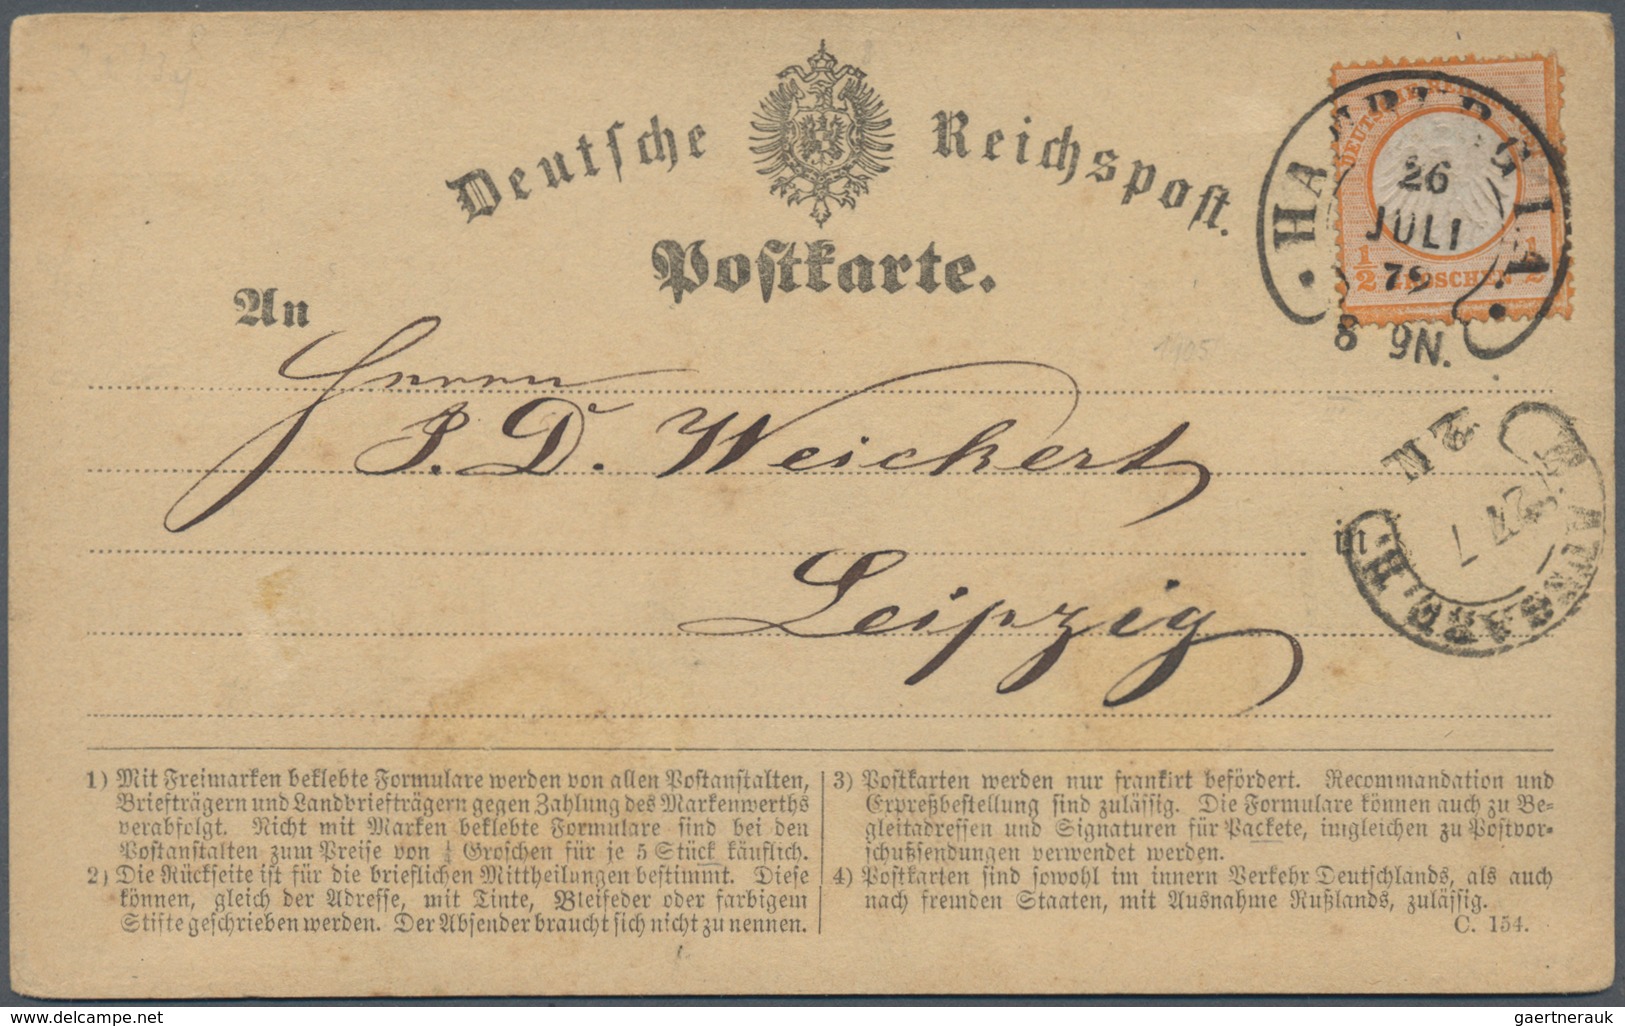 Deutsche Reichspost.
Postkarte.
DEUTSCHE REICHS
1/2 GROSCHEN 1/2
26
JULI
8 9N.
An
Herrn
J. D. Weichert
in
Leipzig
2 N
27 7
1) Mit Freimarken beklebte Formulare werden von allen Postanstalten,
Briefträgern und Landbriefträgern gegen Zahlung des Markenwerths
verabfolgt. Nicht mit Marken beklebte Formulare sind bei den
Postanstalten zum Preise von ¼ Groschen für je 5 Stück käuflich.
2) Die Rückseite ist für die brieflichen Mittheilungen bestimmt. Diese
können, gleich der Adresse, mit Tinte, Bleifeder oder farbigem
Stifte geschrieben werden. Der Absender braucht sich nicht zu nennen.
3) Postkarten werden nur frankirt befördert. Recommandation und
Expreßbestellung sind zulässig. Die Formulare können auch zu Be-
gleitadressen und Signaturen für Packete, imgleichen zu Postvor-
schußsendungen verwendet werden.
4) Postkarten sind sowohl im innern Verkehr Deutschlands, als auch
nach fremden Staaten, mit Ausnahme Rußlands, zulässig.
C. 154.
delcampe.net
gaertnerauk